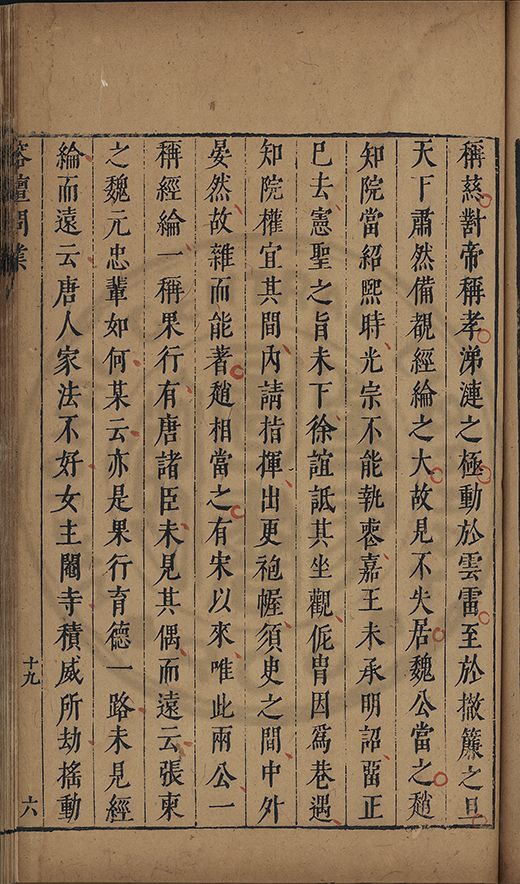 稱慈對帝稱孝涕漣之極動於雲雷至於撤簾之旦
天下肅然備覩經綸之大故見不失居魏公當之趙
知院當紹熙時光宗不能執喪嘉王未承明詔畱正
已去憲聖之旨未下徐誼詆其坐觀侂胄因爲巷遇
知院權宜其間內請指揮出更袍幄須史之間中外
晏然故雜而能著趙相當之有宋以來唯此兩公一
稱經綸一稱果行有唐諸臣未見其偶而遠云張柬
之魏元忠輩如何某云亦是果行育德一路未見經
綸而遠云唐人家法不好女主閹寺積威所劫搖動
榕壇問業
十九
六